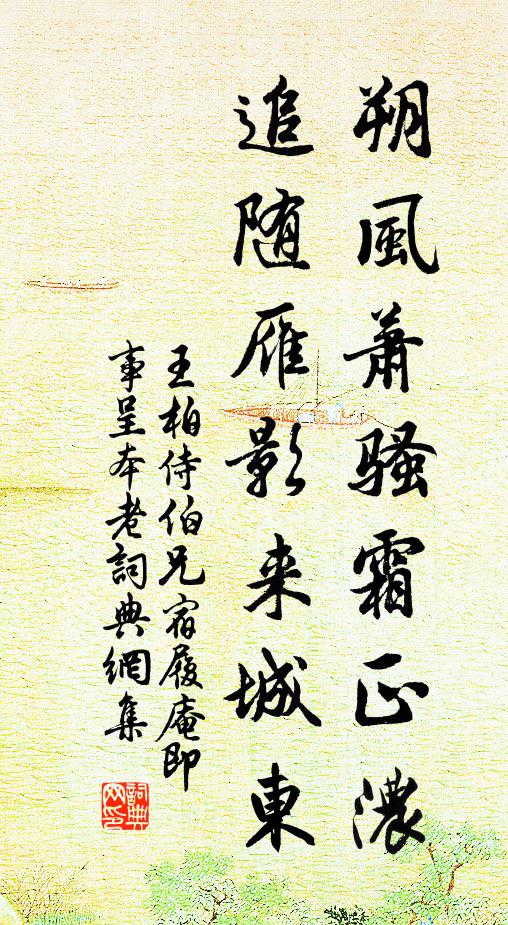 朔風蕭骚霜正濃
追随雁影来城東
王柏侍伯兄宿履庵即
事呈本老詞典網集
詞典网印